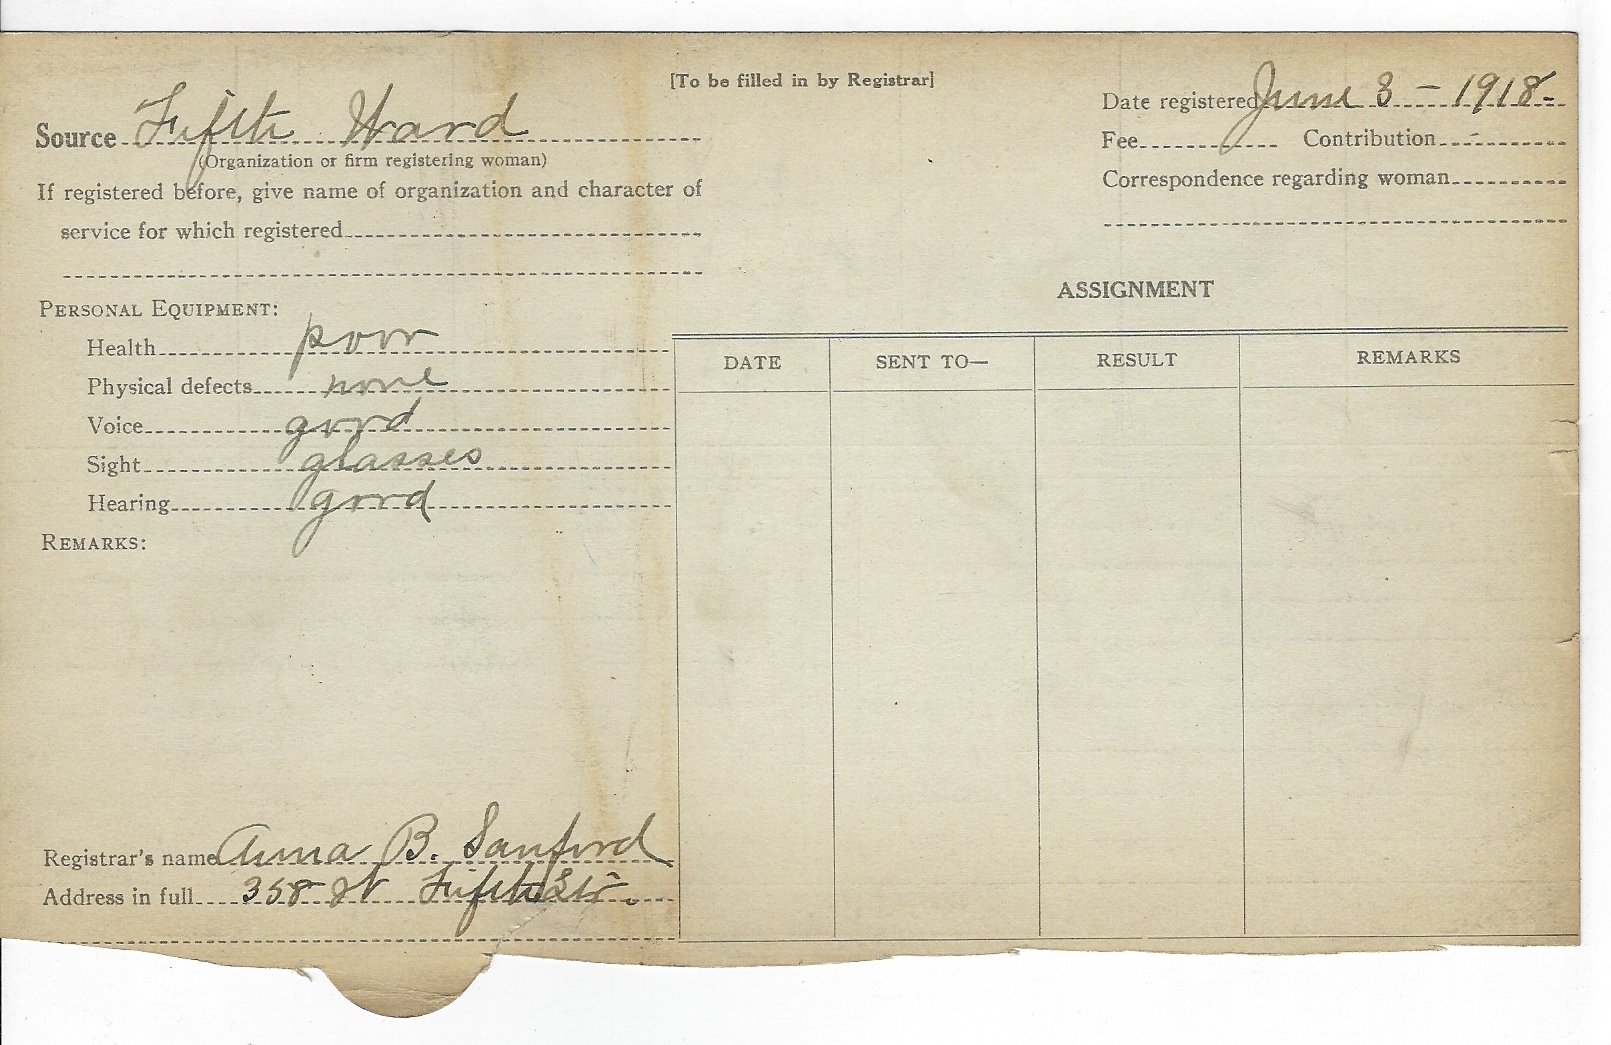 [To be filled in by Registrar]
Source Fifth Ward
(Organization or firm registering woman)
If registered before, give name of organization and character of
service for which registered
Date registered June 3 - 1918
Fee Contribution -
Correspondence regarding woman
PERSONAL EQUIPMENT:
Health poor
Physical defects none
Voice good
Sight glasses
Hearing good
REMARKS:
Registrar's name Anna B. Sanford
Address in full 358 N Fifth Str.
ASSIGNMENT
DATE SENT TO— RESULT REMARKS